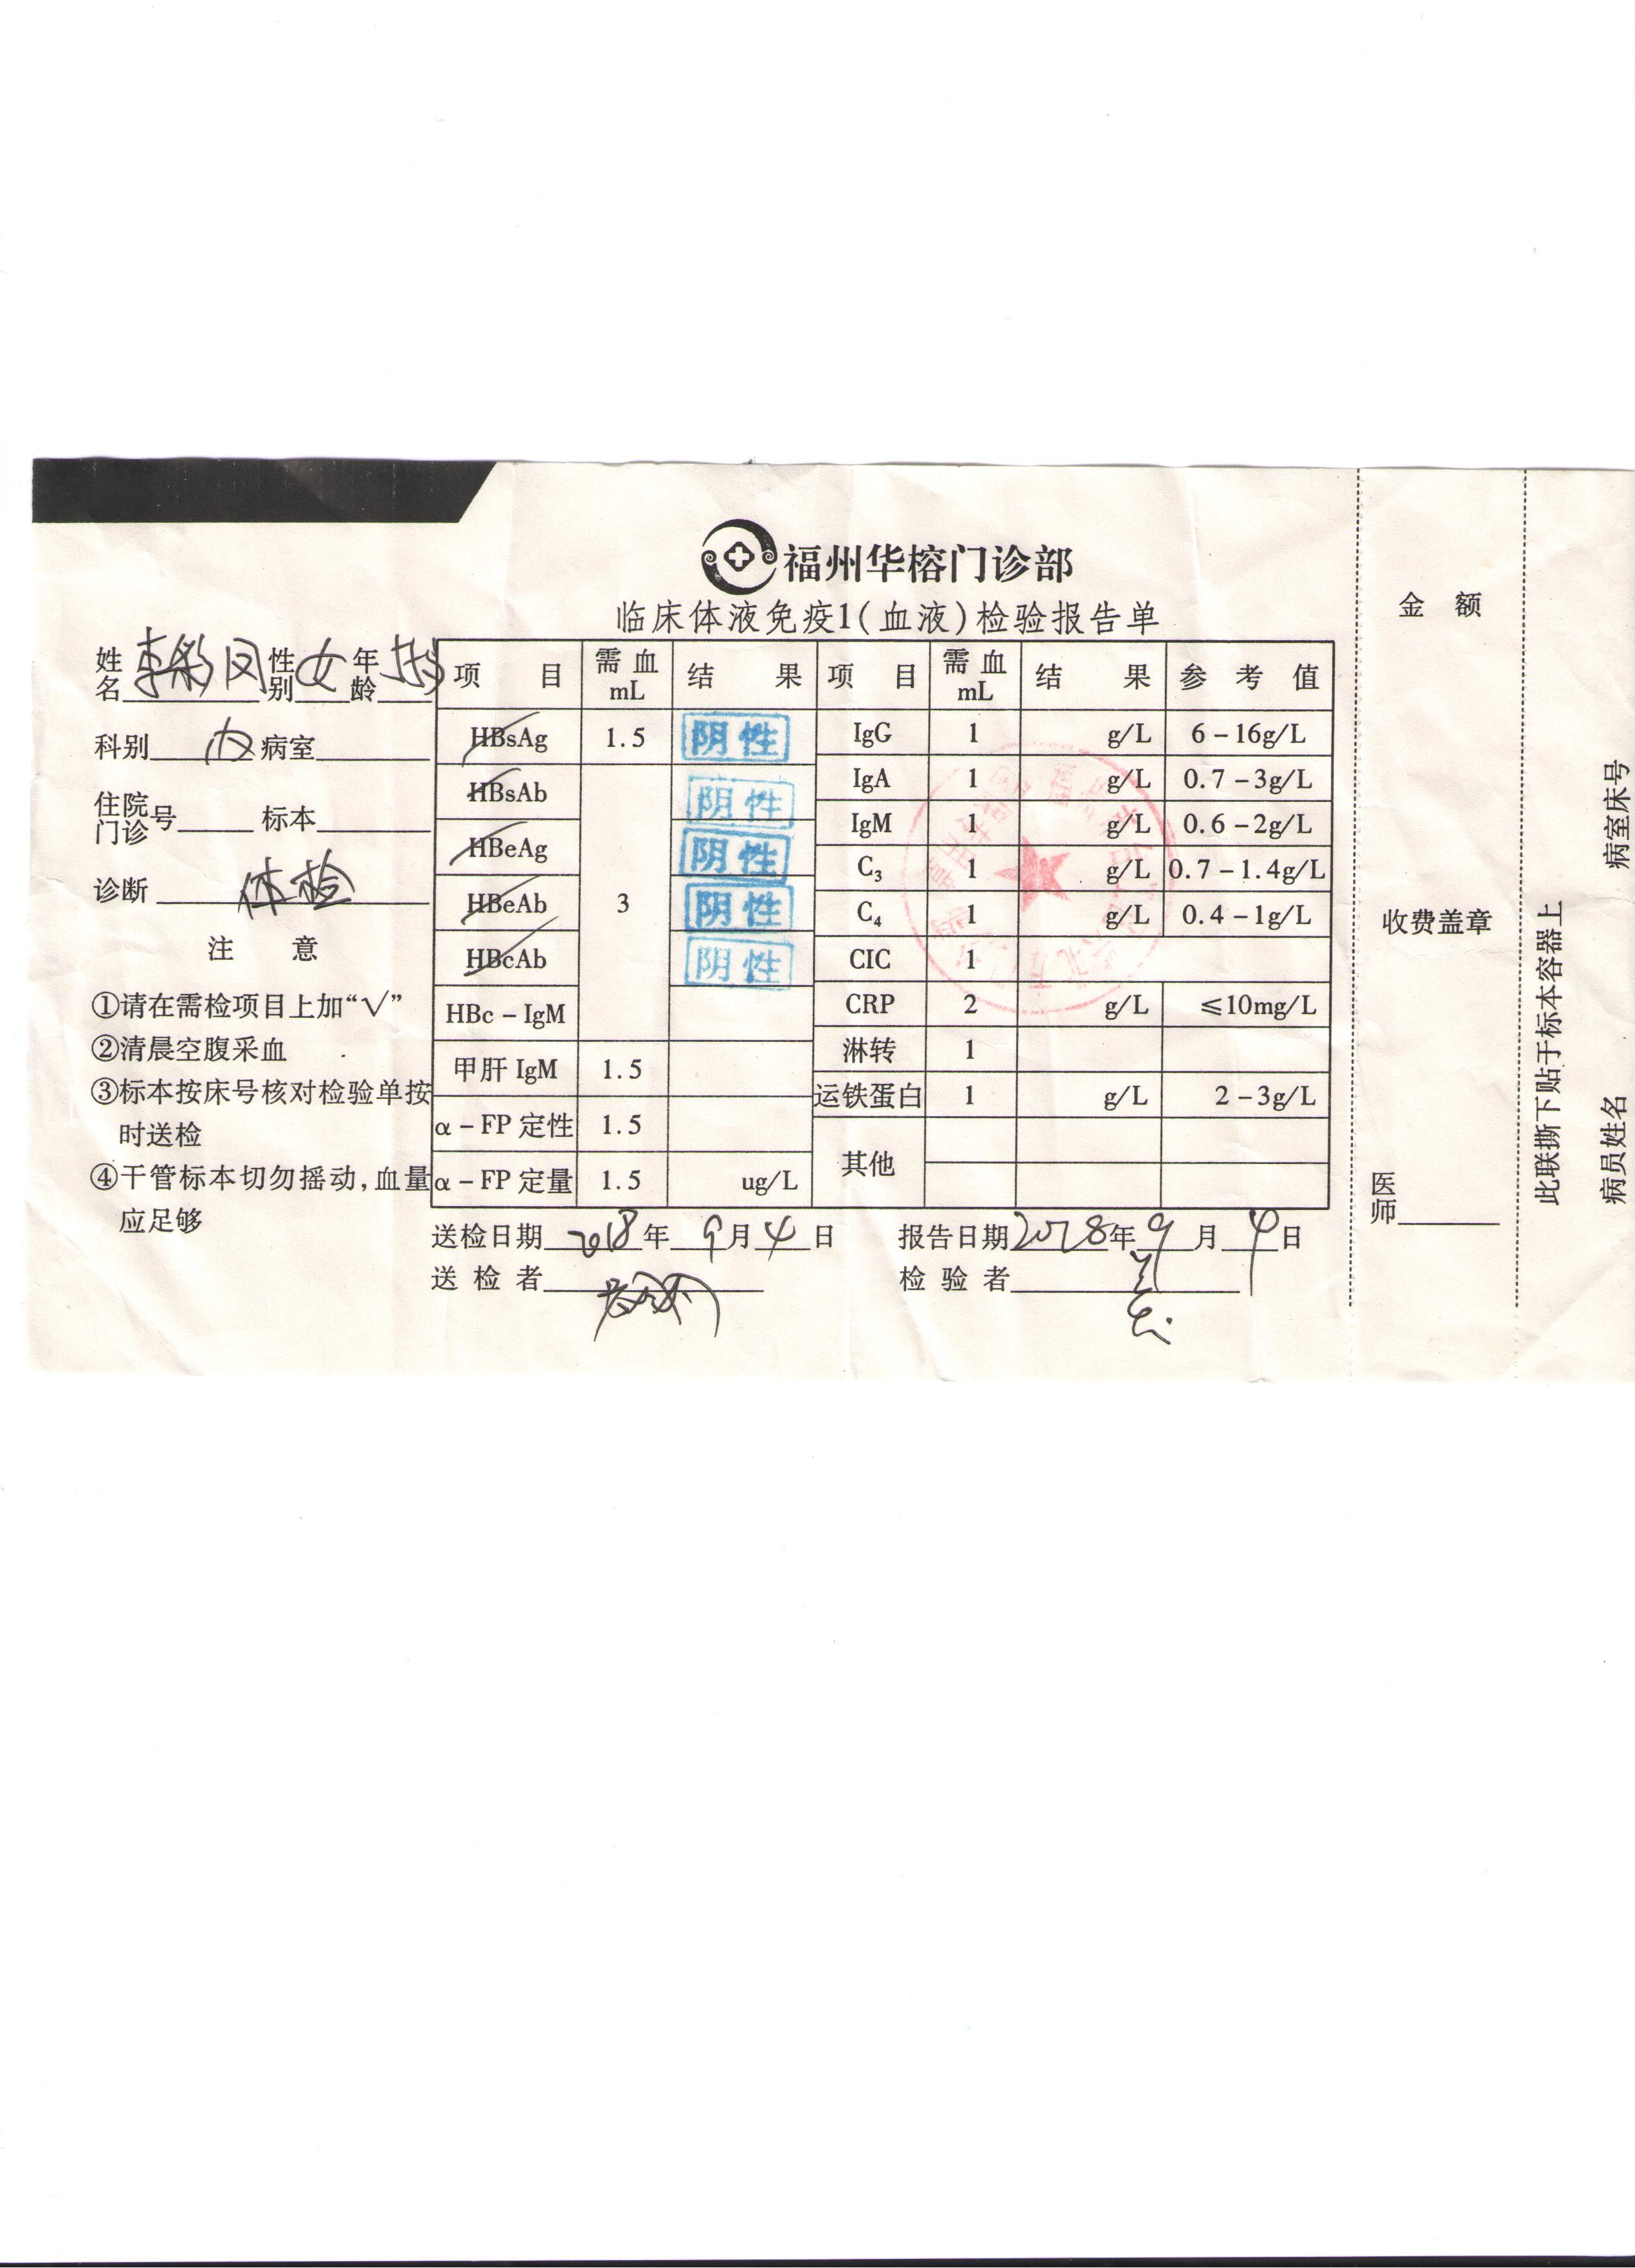 福州华榕门诊部
临床体液免疫1(血液)检验报告单
姓名 李彩凤 性别 女 年龄
科别 内 病室
住院门诊号 标本
诊断 体检
注 意
①请在需检项目上加“√”
②清晨空腹采血
③标本按床号核对检验单按
时送检
④干管标本切勿摇动,血量
应足够
项 目 需血mL 结 果 项 目 需血mL 结 果 参 考 值
HBsAg 1.5 阴性 IgG 1 g/L 6-16g/L
HBsAb 阴性 IgA 1 g/L 0.7-3g/L
HBeAg 阴性 IgM 1 g/L 0.6-2g/L
C3 1 g/L 0.7-1.4g/L
HBeAb 3 阴性 C4 1 g/L 0.4-1g/L
HBcAb 阴性 CIC 1
HBc-IgM CRP 2 g/L ≤10mg/L
淋转 1
甲肝 IgM 1.5 运铁蛋白 1 g/L 2-3g/L
α-FP 定性 1.5 其他
α-FP 定量 1.5 ug/L
送检日期 2018年 9月 4日 报告日期 2018年 9月 4日
送 检 者 检 验 者
金 额
收费盖章
医师
此联撕下贴于标本容器上
病室床号
病员姓名